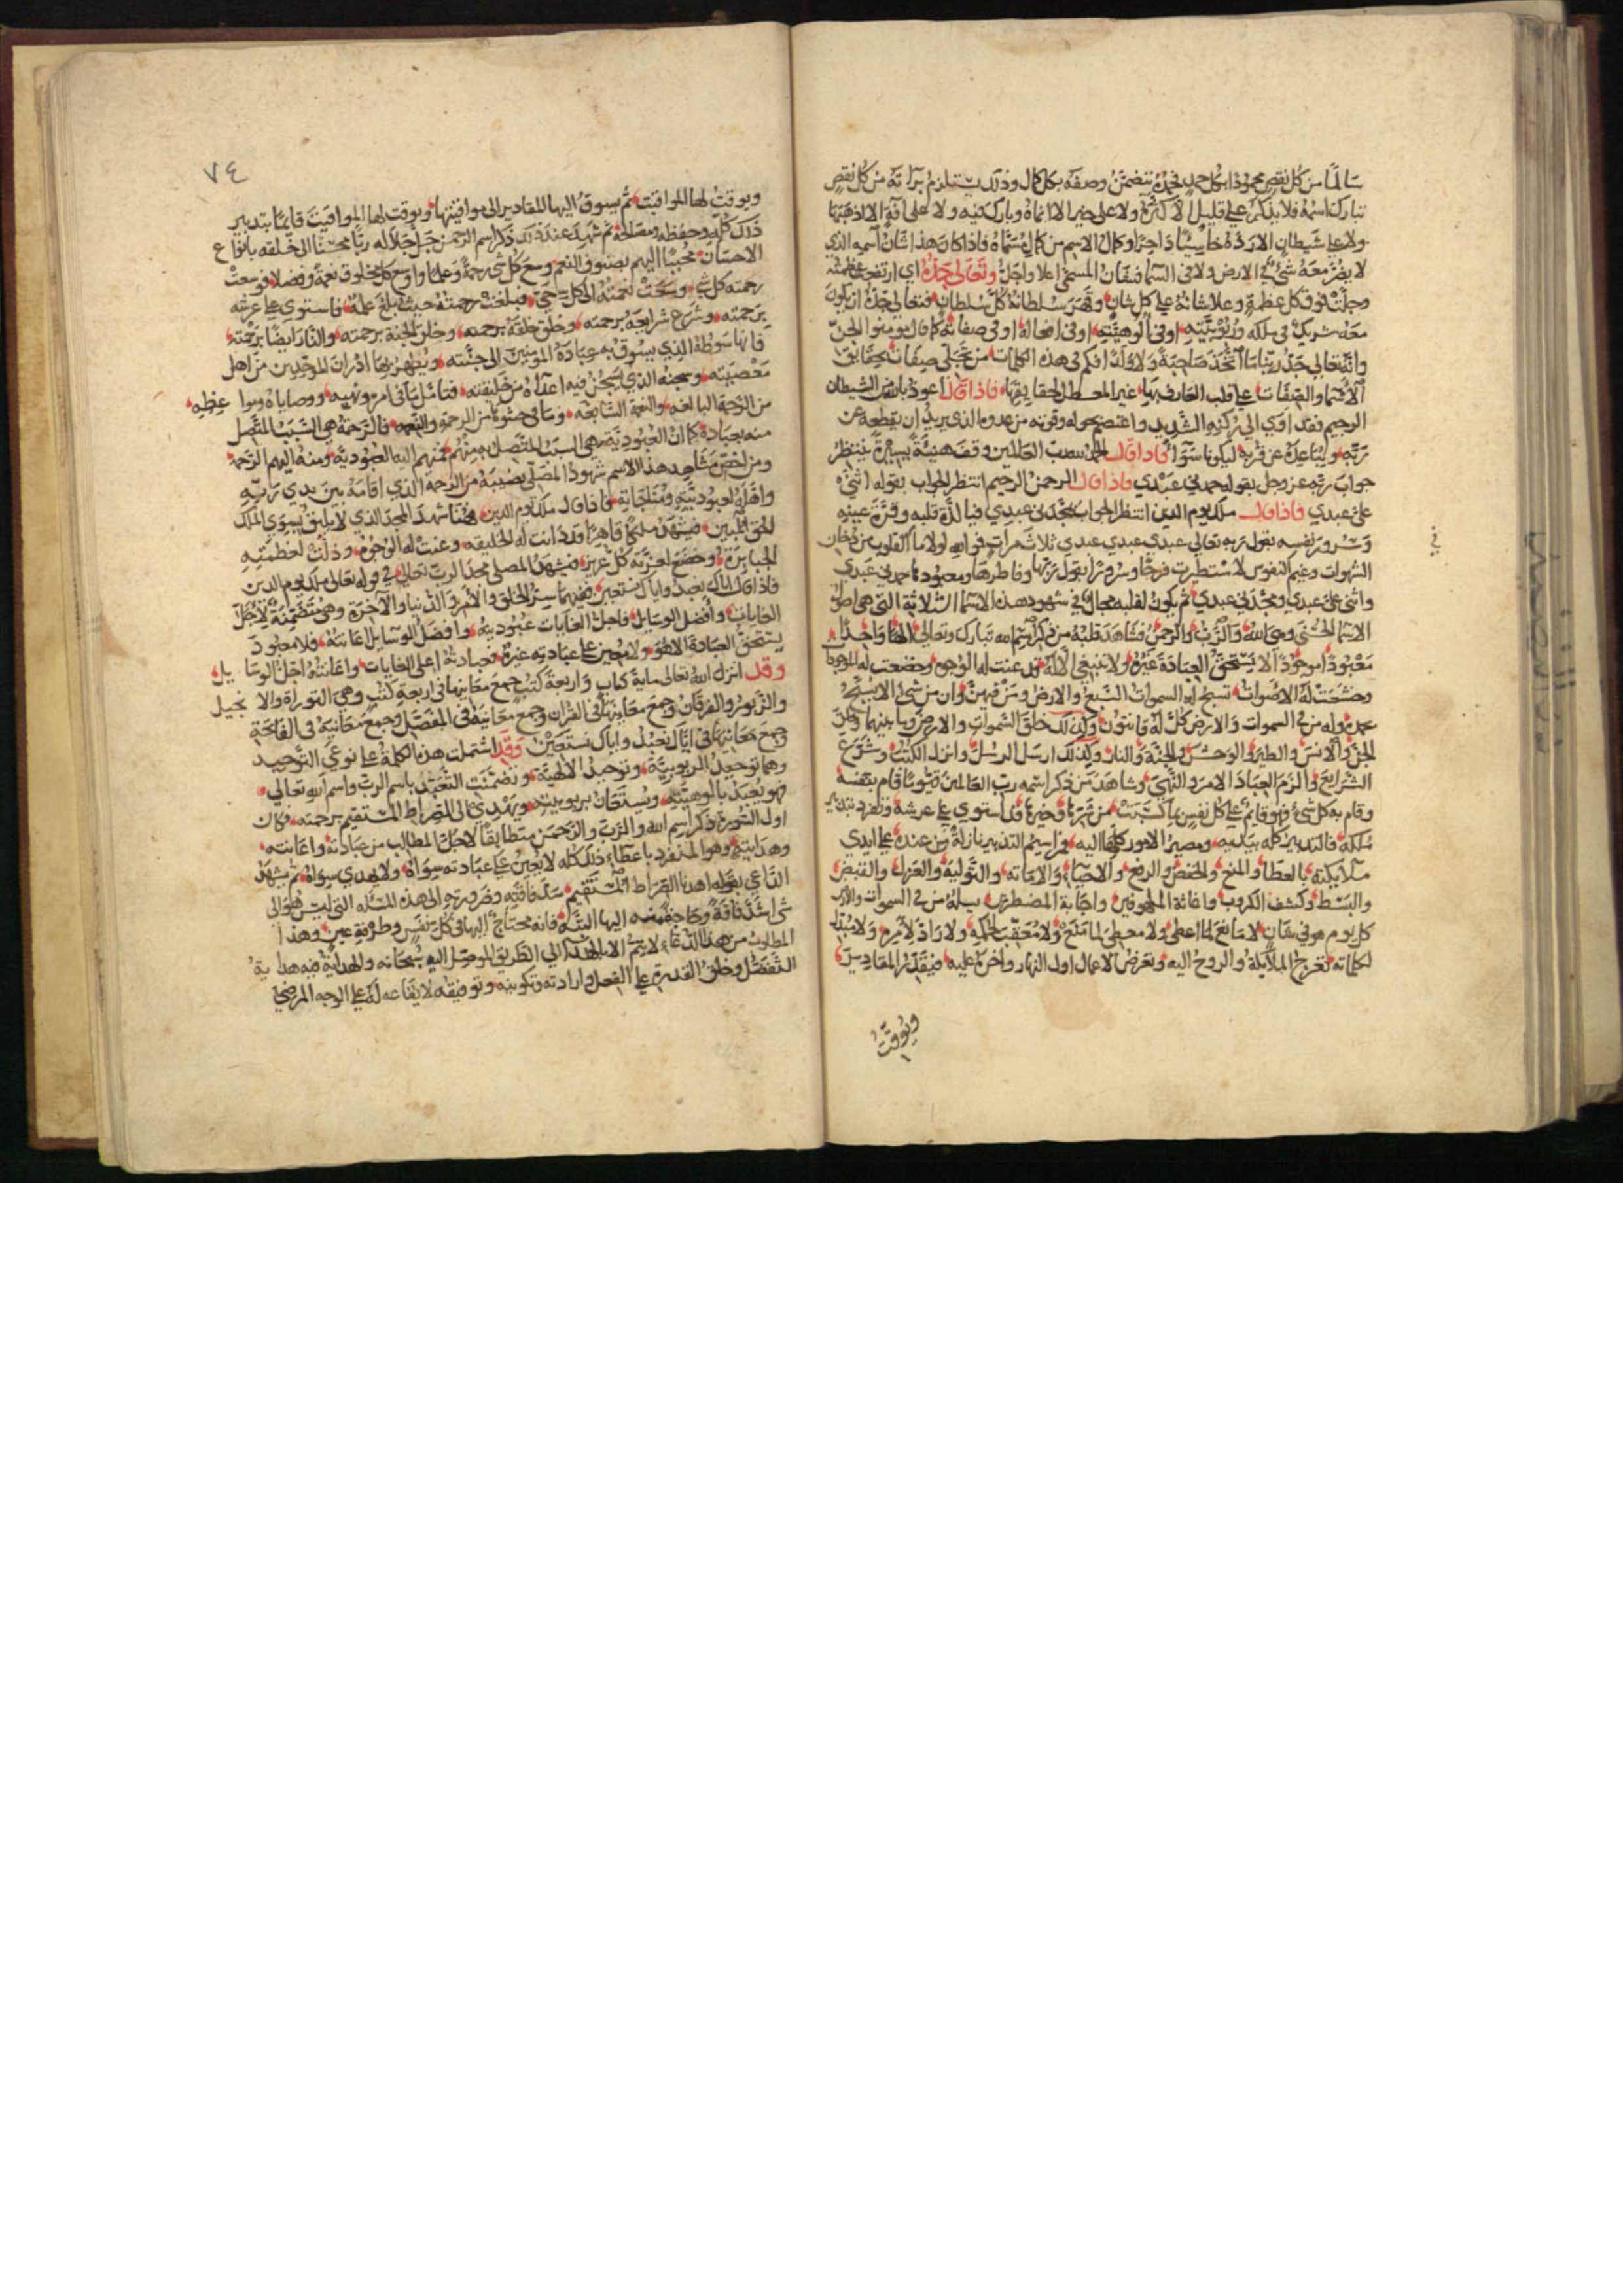 سالما من كل نقص محمودا بكل حمد فحمده يتضمن وصفه بكل كمال وذلك يستلزم براته من كل نقص
تبارك اسمه فلا يذكر على قليل الا كثره ولا على خير الا انماه وبارك فيه ولا على افة الا اذهبها
ولا على شيطان الا رده خاسيا داحرا وكمال الاسم من كمال مسماه فاذا كان هذا شان اسمه الذي
لا يضر معه شي في الارض ولا في السما فشان المسمى اعلا واجل وتعالى جده اي ارتفعت عظمته
وجلت فوق كل عظمة وعلا شانه على كل شان وقهر سلطانه كل سلطان فتعالى جده ان يكون
معه شريك في ملكه وربوبيته او في الوهيته او في افعاله او في صفاته كما قال مومنوا الجن
وانه تعالى جد ربنا ما اتخذ صاحبة ولا ولدا فكم في هذه الكلمات من تجلي صفات بحقايق
الاسما والصفات على قلب العارف بها غير المعطل لحقايقها فاذا قال اعوذ بالله من الشيطان
الرجيم فقد اوي الى ركنه الشديد واعتصم بحوله وقوته من عدوه الذي يريد ان يقطعه عن
ربه ويباعده عن قربه ليكونا سوا فاذا قال الحمد لله رب العالمين وقف هنيئة يسيرة ينتظر
جواب ربه عز وجل بقوله حمدني عبدي فاذا قال الرحمن الرحيم انتظر الجواب بقوله اثنى
على عبدي فاذا قال ملك يوم الدين انتظر الجواب مجدني عبدي فيا لذة قلبه وقرة عينه
وسرور نفسه بقول ربه تعالى عبدي عبدي عبدي ثلاث مرات فوالله لولا ما القلوب من دخان
الشهوات وغيم النفوس لاستطيرت فرحا وسرورا بقول ربها وفاطرها ومعبودها حمدني عبدي
واثنى على عبدي ومجدني عبدي ثم يكون لقلبه مجال في شهود هذه الاسما الثلاثة التي هي اصل
الاسما الحسنى وهي الله والرب والرحمن فشاهد قلبه من ذكر اسم الله تبارك وتعالى الها واحدا
معبودا موجودا لا يستحق العبادة غيره ولا تنبغي الا له قد عنت له الوجوه وخضعت له الموجودات
وخشعت له الاصوات تسبح له السموات السبع والارض ومن فيهن وان من شي الا يسبح
بحمده وله من في السموات والارض كل له قانتون وكذلك خلق السموات والارض وما بينهما وخلق
الجن والانس والطير والوحش والجنة والنار وكذلك ارسل الرسل وانزل الكتب وشرع
الشرايع والزم العباد الامر والنهي وشاهد من ذكر اسمه رب العالمين قيوما قام بنفسه
وقام به كل شي فهو قايم على كل نفس بما كسبت من شرها وخيرها قد استوي على عرشه وتفرد بتدبير
ملكه فالتدبير كله بيديه ومصير الامور كلها اليه فمراسم التدبير نازلة من عنده على ايدي
ملايكته بالعطا والمنع والخفض والرفع والاحياء والاماته والتولية والعزل والقبض
والبسط وكشف الكروب واغاثة الملهوفين واجابة المضطرين يسله من في السموات والارض
كل يوم هو في شان لا مانع لما اعطى ولا معطي لما منع ولا معقب لحكمه ولا راد لامره ولا مبدل
لكلماته تعرج الملايكة والروح اليه وتعرض الاعمال اول النهار واخره عليه فيقدر المقادير
ويوقت
٧٤
ويوقت لها المواقيت ثم يسوق اليها المقادير الى مواقيتها ويوقت لها المواقيت قايما بتدبير
ذلك كله وحفظه ومصالحه ثم شهد عند ذلك ذكر اسم الرحمن جل جلاله ربا محسنا الى خلقه بانواع
الاحسان محببا اليهم بصنوف النعم وسع كل شي رحمة وعلما واوسع كل مخلوق نعمة وفضلا فوسعت
رحمته كل شي وسعت نعمته الى كل حي وبلغت رحمته حيث بلغ علمه فاستوي على عرشه
برحمته وشرع شرايعه برحمته وخلق خلقه برحمته وخلق الجنة برحمته والنار ايضا برحمته
فانها سوطه الذي يسوق به عباده المومنين الى جنته ويطهر بها ادران الموحدين من اهل
معصيته وسجنه الذي يسجن فيه اعداه من خليقته فتامل ما في امره ونهيه ووصاياه ومواعظه
من الرحمة البالغه والنعمة السابغه وما في حشوها من الرحمة والنعمه فالرحمة هي السبب المتصل
منه بعباده كما ان العبودية هي السبب المتصل بهم منهم فمنهم اليه العبودية ومنه اليهم الرحمة
ومن اخص مشاهد هذا الاسم شهود المصلي نصيبه من الرحمة الذي اقامه بين يدي ربه
واهله لعبوديته ومناجاته فاذا قال ملك يوم الدين فهنا شهد المجد الذي لا يليق بسوى الملك
الحق المبين فيشهد ملكا قاهرا قد دانت له الخليقه وعنت له الوجوه وذلت لعظمته
الجبابرة وخضع لعزته كل عزيز فيشهد المصلي مجد الرب تعالى في قوله تعالى ملك يوم الدين
فاذا قال اياك نعبد واياك نستعين ففيهما سر الخلق والامر والدنيا والاخرة وهي متضمنة لاجل
الغايات وافضل الوسايل فاجل الغايات عبوديته وافضل الوسايل اعانته فلا معبود
يستحق العبادة الا هو ولا معين على عبادته غيره فعبادته اعلى الغايات واعانته اجل الوسايل
وقد انزل الله تعالى ماية كتاب واربعة كتب جمع معانيها في اربعة كتب وهي التوراة والانجيل
والزبور والفرقان وجمع معانيها في القران وجمع معانيه في المفصل وجمع معانيه في الفاتحة
وجمع معانيها في اياك نعبد واياك نستعين وقد اشتملت هذه الكلمة على نوعي التوحيد
وهما توحيد الربوبية وتوحيد الالهية وتضمنت التعبد باسم الرب واسم الله تعالى
فهو يعبد بالوهيته ويستعان بربوبيته ويهدي الى الصراط المستقيم برحمته فكان
اول السورة ذكر اسم الله والرب والرحمن متطابقا لاجل المطالب من عبادته واعانته
وهدايته وهو المنفرد باعطاء ذلك كله لا يعين على عبادته سواه ولا يهدي سواه ثم يشهد
الداعي بقوله اهدنا الصراط المستقيم شدة فاقته وضرورته الى هذه المسئله التي ليس هو الى
شي اشد فاقة وحاجة منه اليها البتة فانه محتاج اليها في كل نفس وطرفة عين وهذا
المطلوب من هذا الدعاء لا يتم الا بالهدى الى الطريق الموصل اليه سبحانه والهداية فيه هداية
التفضل وخلق القدرة على الفعل وارادته وتكوينه وتوفيقه لايقاعه له على الوجه المرضي